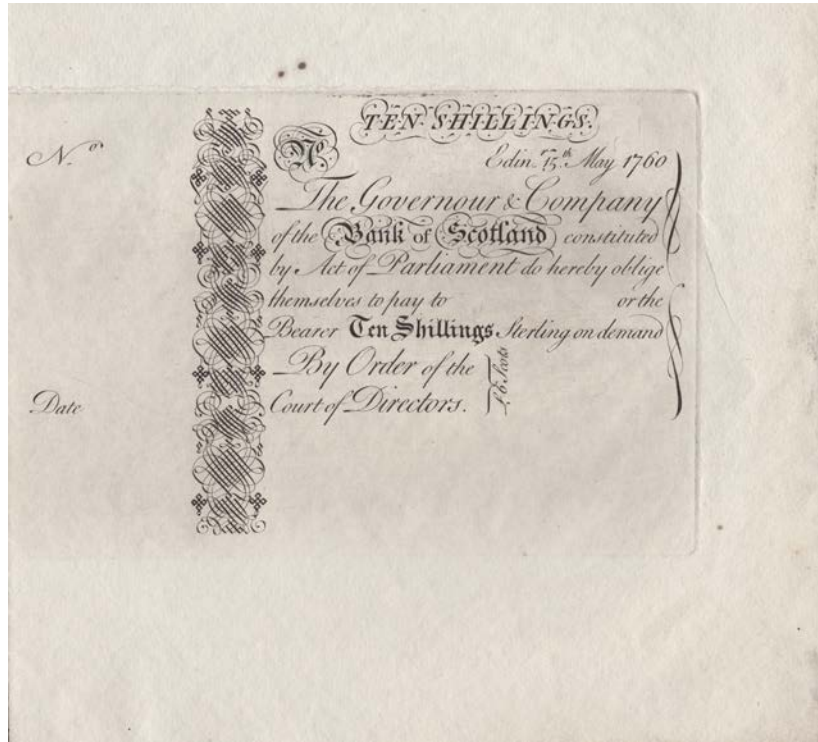 TEN SHILLINGS.
N.º
Nº
Edinʳ. 15ᵗʰ. May 1760
The Governour & Company
of the Bank of Scotland constituted
by Act of Parliament do hereby oblige
themselves to pay to or the
Bearer Ten Shillings Sterling on demand
By Order of the
Court of Directors.
£6 Scots
Date